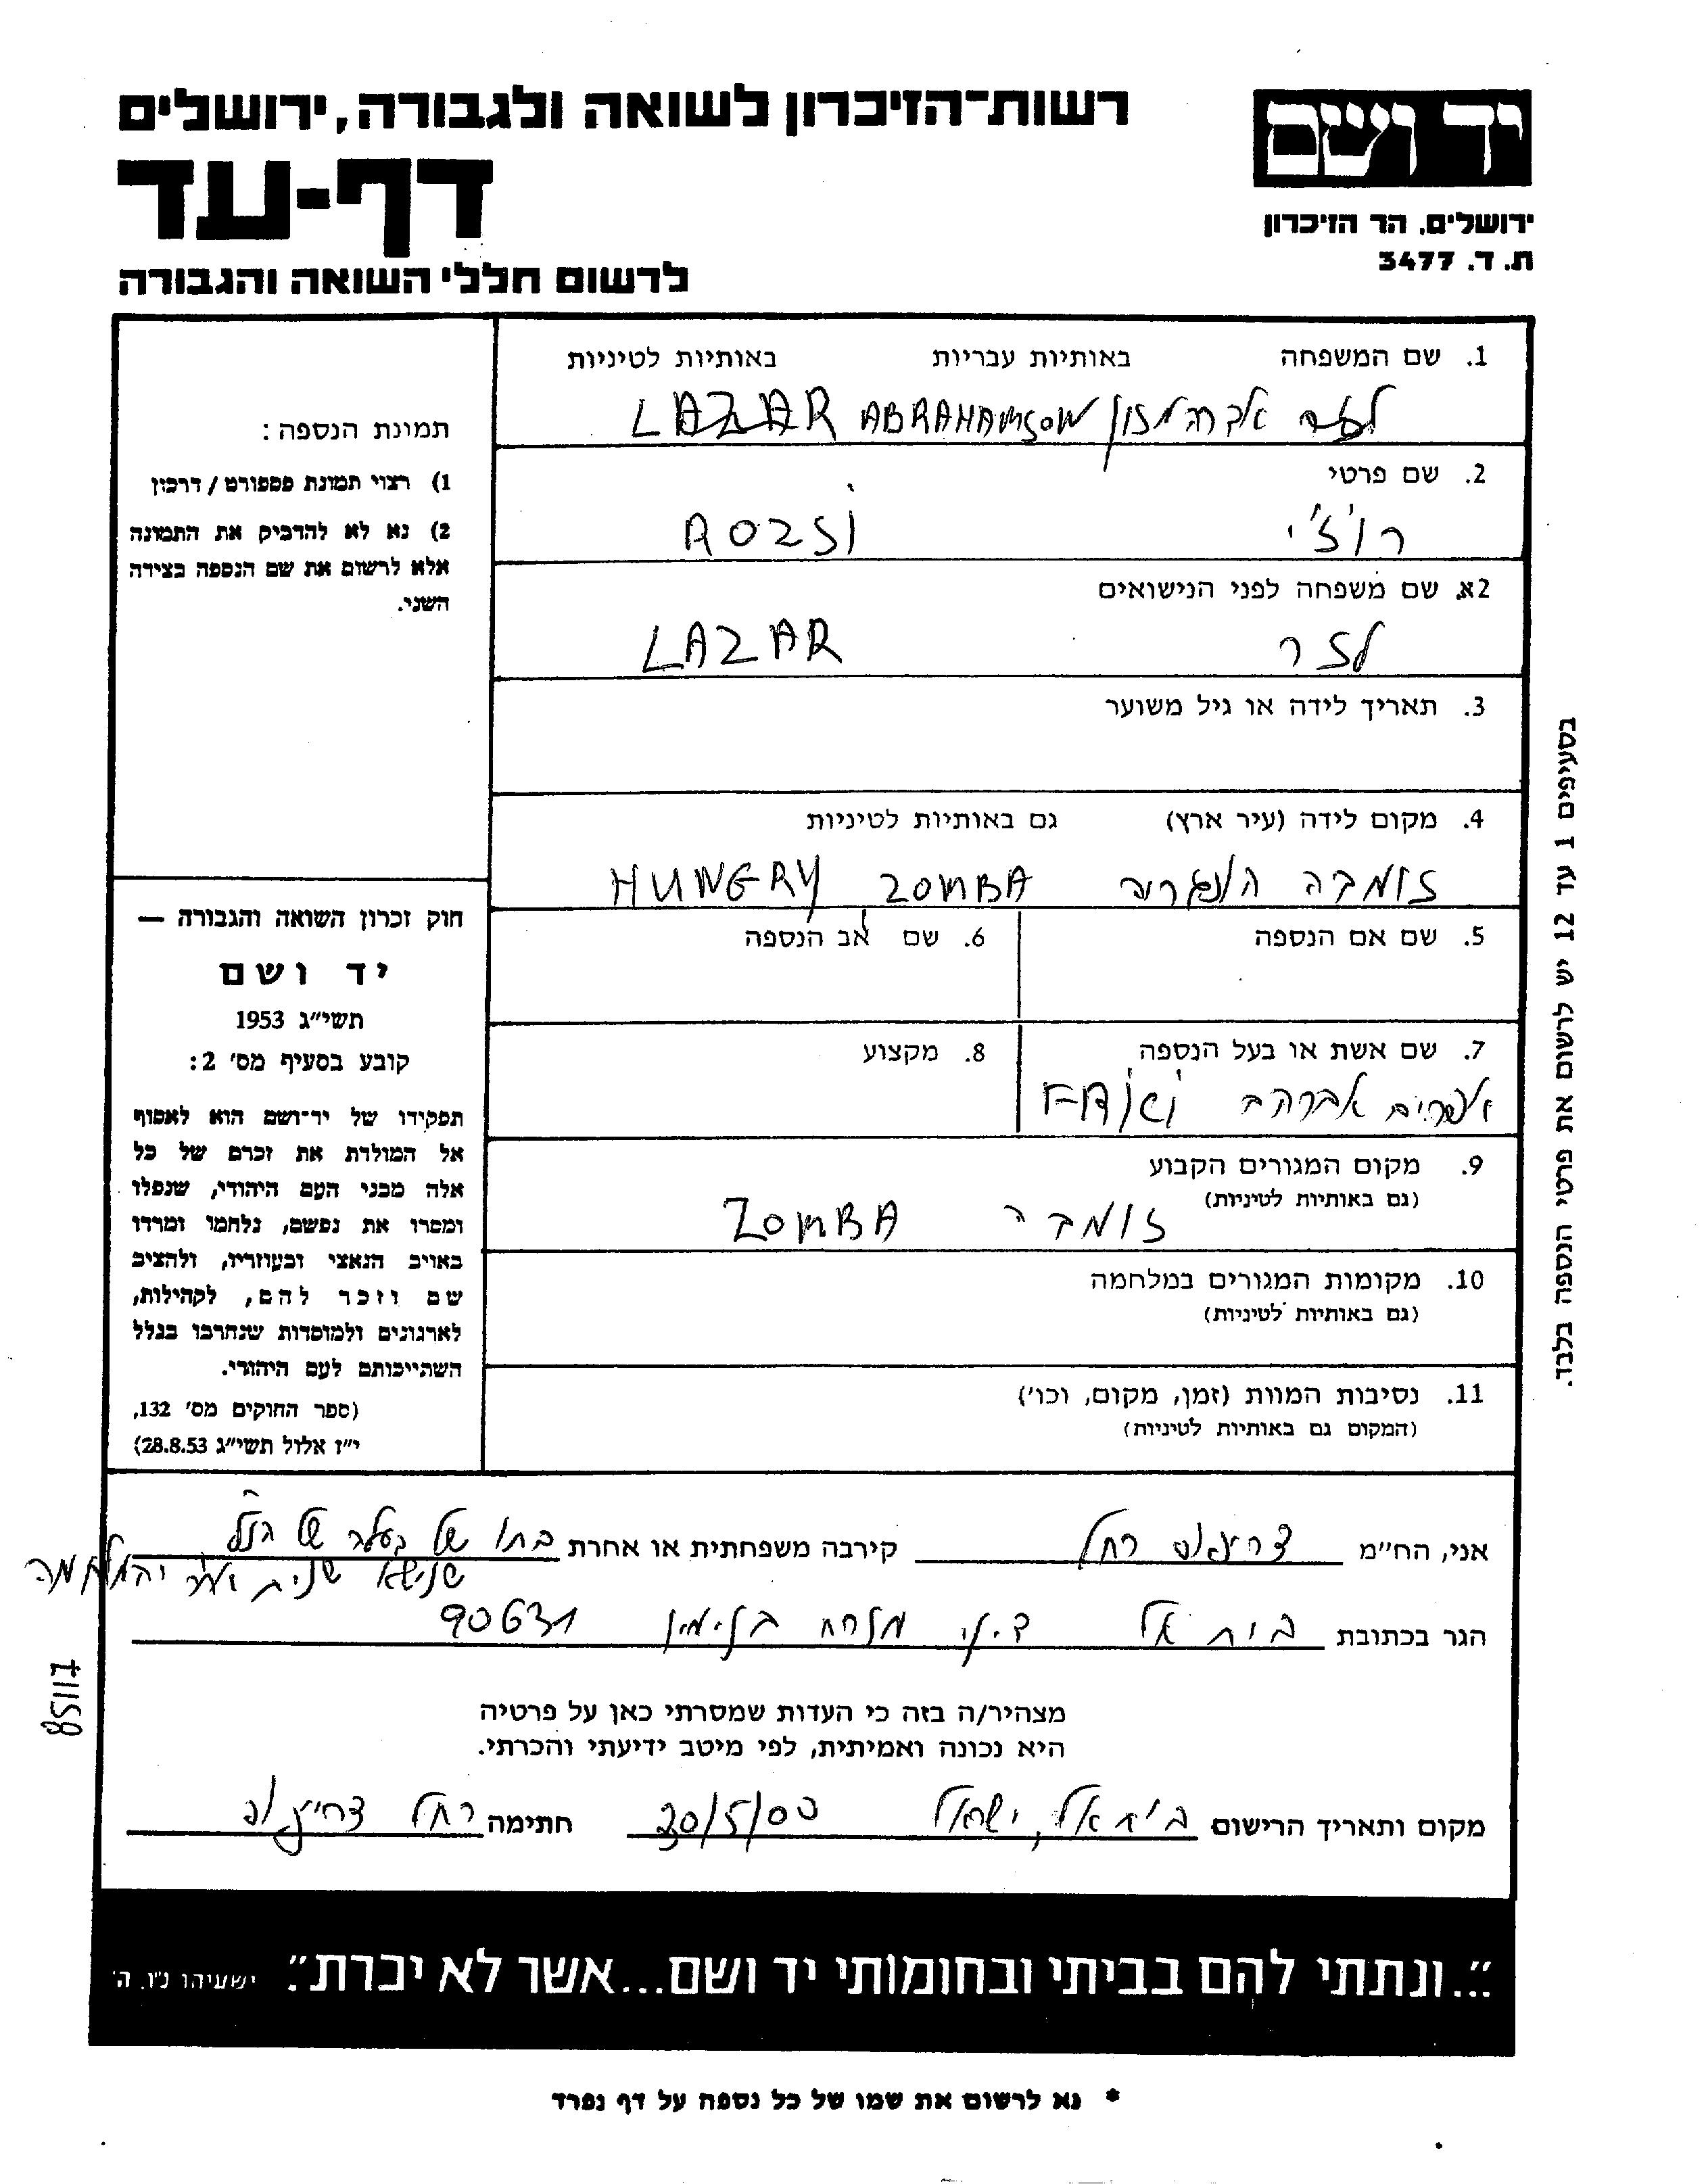 רשות־הזיכרון לשואה ולגבורה, ירושלים
דף-עד
לרשום חללי השואה והגבורה
יד ושם
ירושלים, הר הזיכרון
ת. ד. 3477
1. שם המשפחה באותיות עבריות באותיות לטיניות
אברהמסון ABRAHAMSON LAZAR
2. שם פרטי
רוז'י ROZSI
2א. שם משפחה לפני הנישואים
לזר LAZAR
3. תאריך לידה או גיל משוער
4. מקום לידה (עיר ארץ) גם באותיות לטיניות
זומבה הונגריה ZOMBA HUNGRY
5. שם אם הנספה
6. שם אב הנספה
7. שם אשת או בעל הנספה
אפרים אברהם
8. מקצוע
9. מקום המגורים הקבוע
(גם באותיות לטיניות)
זומבה ZOMBA
10. מקומות המגורים במלחמה
(גם באותיות לטיניות)
11. נסיבות המוות (זמן, מקום, וכו')
(המקום גם באותיות לטיניות)
תמונת הנספה:
1) רצוי תמונת פספורט / דרכון
2) נא לא להדביק את התמונה
אלא לרשום את שם הנספה בצידה
השני.
חוק זכרון השואה והגבורה —
יד ושם
תשי"ג 1953
קובע בסעיף מס' 2:
תפקידו של יד־ושם הוא לאסוף
אל המולדת את זכרם של כל
אלה מבני העם היהודי, שנפלו
ומסרו את נפשם, נלחמו ומרדו
באויב הנאצי ובעוזריו, ולהציב
שם וזכר להם, לקהילות,
לארגונים ולמוסדות שנחרבו בגלל
השתייכותם לעם היהודי.
(ספר החוקים מס' 132,
י"ז אלול תשי"ג 28.8.53)
בסעיפים 1 עד 12 יש לרשום את פרטי הנספה בלבד.
אני, הח"מ רחל קירבה משפחתית או אחרת בתו של בעלה של הנ"ל
שנישא שנית אחרי המלחמה
הגר בכתובת בית אל ד.נ. מזרח בנימין 90631
85117
מצהיר/ה בזה כי העדות שמסרתי כאן על פרטיה
היא נכונה ואמיתית, לפי מיטב ידיעתי והכרתי.
מקום ותאריך הרישום בית אל, ישראל 30/5/00 חתימה רחל
"...ונתתי להם בביתי ובחומותי יד ושם...אשר לא יכרת". ישעיהו נ"ו, ה'
* נא לרשום את שמו של כל נספה על דף נפרד